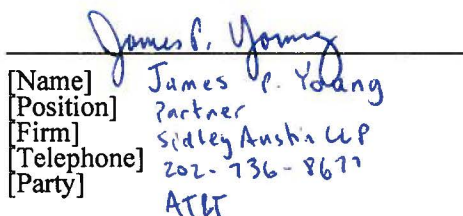 James P. Young
[Name] James P. Young
[Position] Partner
[Firm] Sidley Austin LLP
[Telephone] 202-736-8677
[Party] AT&T